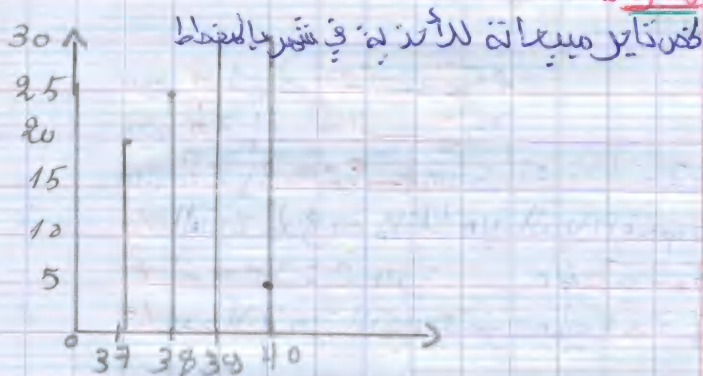 لخص تاجر مبيعاتة للأحذية في شهر بالمخطط
30
25
20
15
10
5
0 37 38 39 40